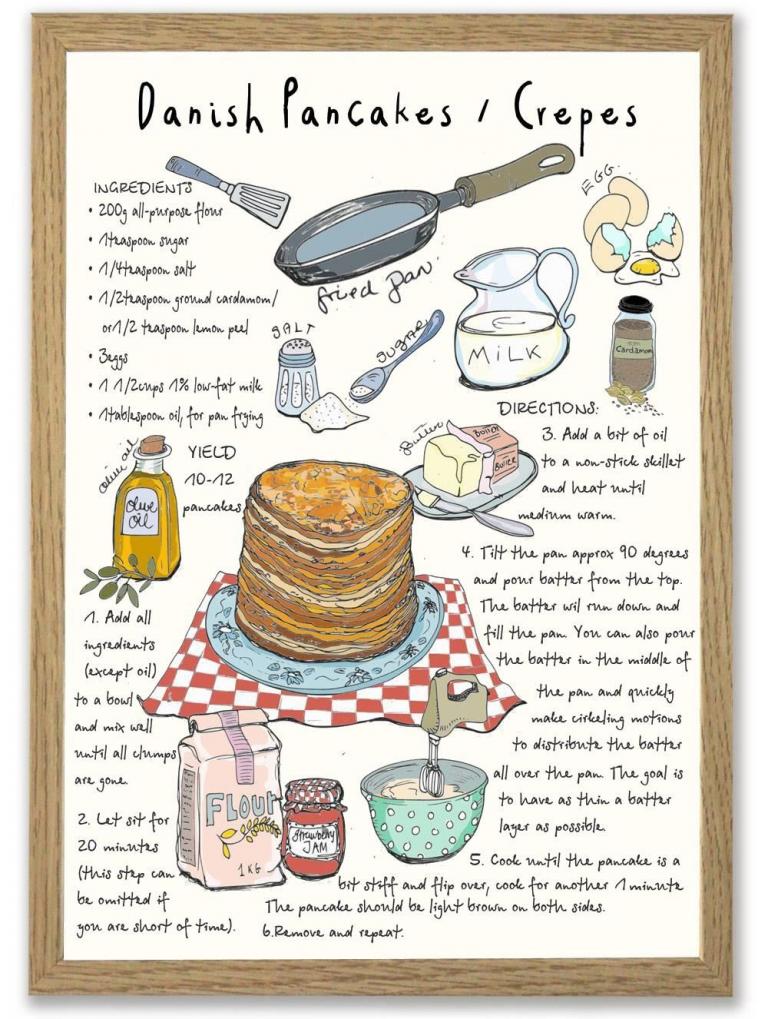 Danish Pancakes / Crepes
INGREDIENTS
• 200g all-purpose flour
• 1teaspoon sugar
• 1/4teaspoon salt
• 1/2teaspoon ground cardamom/
or1/2 teaspoon lemon peel
• 3eggs
• 1 1/2cups 1% low-fat milk
• 1tablespoon oil, for pan frying
fried pan
EGG
SALT
SUGAR
MILK
Cardamom
olive oil
OLIVE
OIL
YIELD
10-12
pancakes
Butter
BUTTER
BUTTER
1. Add all
ingredients
(except oil)
to a bowl
and mix well
until all clumps
are gone.
2. Let sit for
20 minutes
(this step can
be omitted if
you are short of time).
FLOUR
1KG
Strawberry
JAM
DIRECTIONS:
3. Add a bit of oil
to a non-stick skillet
and heat until
medium warm.
4. Tilt the pan approx 90 degrees
and pour batter from the top.
The batter wil run down and
fill the pan. You can also pour
the batter in the middle of
the pan and quickly
make cirkeling motions
to distribute the batter
all over the pan. The goal is
to have as thin a batter
layer as possible.
5. Cook until the pancake is a
bit stiff and flip over, cook for another 1 minute
The pancake should be light brown on both sides.
6.Remove and repeat.